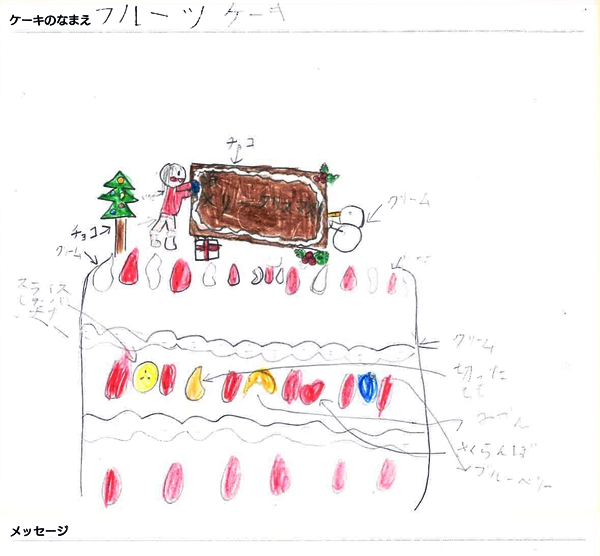 ケーキのなまえ フルーツ ケーキ
チョコ
メリークリスマス
クリーム
チョコ
クリーム
スライス
クリーム
切った
もも
みかん
さくらんぼ
ブルーベリー
メッセージ